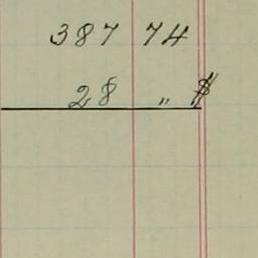 387 74
28 „ $